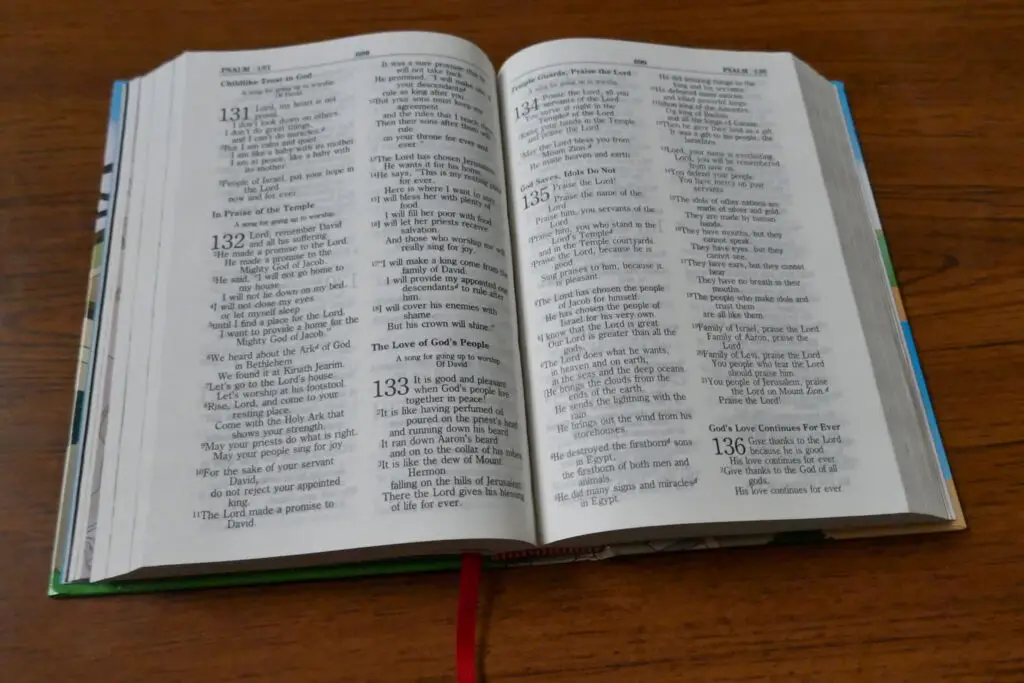 PSALM 131
Childlike Trust in God
A song for going up to worship.
Of David.
131 Lord, my heart is not
proud.
I don't look down on others.
I don't do great things,
and I can't do miracles.d
2But I am calm and quiet.
I am like a baby with its mother.
I am at peace, like a baby with
its mother.
3People of Israel, put your hope in
the Lord
now and for ever.
In Praise of the Temple
A song for going up to worship.
132 Lord, remember David
and all his suffering.
2He made a promise to the Lord.
He made a promise to the
Mighty God of Jacob.
3He said, "I will not go home to
my house.
I will not lie down on my bed.
4I will not close my eyes
or let myself sleep
5until I find a place for the Lord.
I want to provide a home for the
Mighty God of Jacob."
6We heard about the Arkd of God
in Bethlehem.
We found it at Kiriath Jearim.
7Let's go to the Lord's house.
Let's worship at his footstool.
8Rise, Lord, and come to your
resting place.
Come with the Holy Ark that
shows your strength.
9May your priests do what is right.
May your people sing for joy.
10For the sake of your servant
David,
do not reject your appointed
king.
11The Lord made a promise to
David.
It was a sure promise that he
will not take back.
He promised, "I will make one of
your descendantsd
rule as king after you.
12But your sons must keep my
agreement
and the rules that I teach them.
Then their sons after them will
rule
on your throne for ever and
ever."
13The Lord has chosen Jerusalem.
He wants it for his home.
14He says, "This is my resting place
for ever.
Here is where I want to stay.
15I will bless her with plenty of
food.
I will fill her poor with food.
16I will let her priests receive
salvation.
And those who worship me will
really sing for joy.
17"I will make a king come from the
family of David.
I will provide my appointed one
descendantsd to rule after
him.
18I will cover his enemies with
shame.
But his crown will shine."
The Love of God's People
A song for going up to worship.
Of David.
133 It is good and pleasant
when God's people live
together in peace!
2It is like having perfumed oil
poured on the priest's head
and running down his beard.
It ran down Aaron's beard
and on to the collar of his robes.
3It is like the dew of Mount
Hermon
falling on the hills of Jerusalem.
There the Lord gives his blessing
of life for ever.
Temple Guards, Praise the Lord
A song for going up to worship.
134 Praise the Lord, all you
servants of the Lord.
You serve at night in the
Templed of the Lord.
2Raise your hands in the Temple
and praise the Lord.
3May the Lord bless you from
Mount Zion.d
He made heaven and earth.
God Saves, Idols Do Not
135 Praise the Lord!
Praise the name of the
Lord.
Praise him, you servants of the
Lord.
2Praise him, you who stand in the
Lord's Templed
and in the Temple courtyards.
3Praise the Lord, because he is
good.
Sing praises to him, because it
is pleasant.
4The Lord has chosen the people
of Jacob for himself.
He has chosen the people of
Israel for his very own.
5I know that the Lord is great.
Our Lord is greater than all the
gods.
6The Lord does what he wants,
in heaven and on earth,
in the seas and the deep oceans.
7He brings the clouds from the
ends of the earth.
He sends the lightning with the
rain.
He brings out the wind from his
storehouses.
8He destroyed the firstbornd sons
in Egypt,
the firstborn of both men and
animals.
9He did many signs and miraclesd
in Egypt.
PSALM 136
He did amazing things to the
king and his servants.
10He defeated many nations
and killed powerful kings:
11Sihon king of the Amorites,
Og king of Bashan
and all the kings of Canaan.
12Then he gave their land as a gift.
It was a gift to his people, the
Israelites.
13Lord, your name is everlasting.
Lord, you will be remembered
from now on.
14You defend your people.
You have mercy on your
servants.
15The idols of other nations are
made of silver and gold.
They are made by human
hands.
16They have mouths, but they
cannot speak.
They have eyes, but they
cannot see.
17They have ears, but they cannot
hear.
They have no breath in their
mouths.
18The people who make idols and
trust them
are all like them.
19Family of Israel, praise the Lord.
Family of Aaron, praise the
Lord.
20Family of Levi, praise the Lord.
You people who fear the Lord
should praise him.
21You people of Jerusalem, praise
the Lord on Mount Zion.d
Praise the Lord!
God's Love Continues For Ever
136 Give thanks to the Lord
because he is good.
His love continues for ever.
2Give thanks to the God of all
gods.
His love continues for ever.